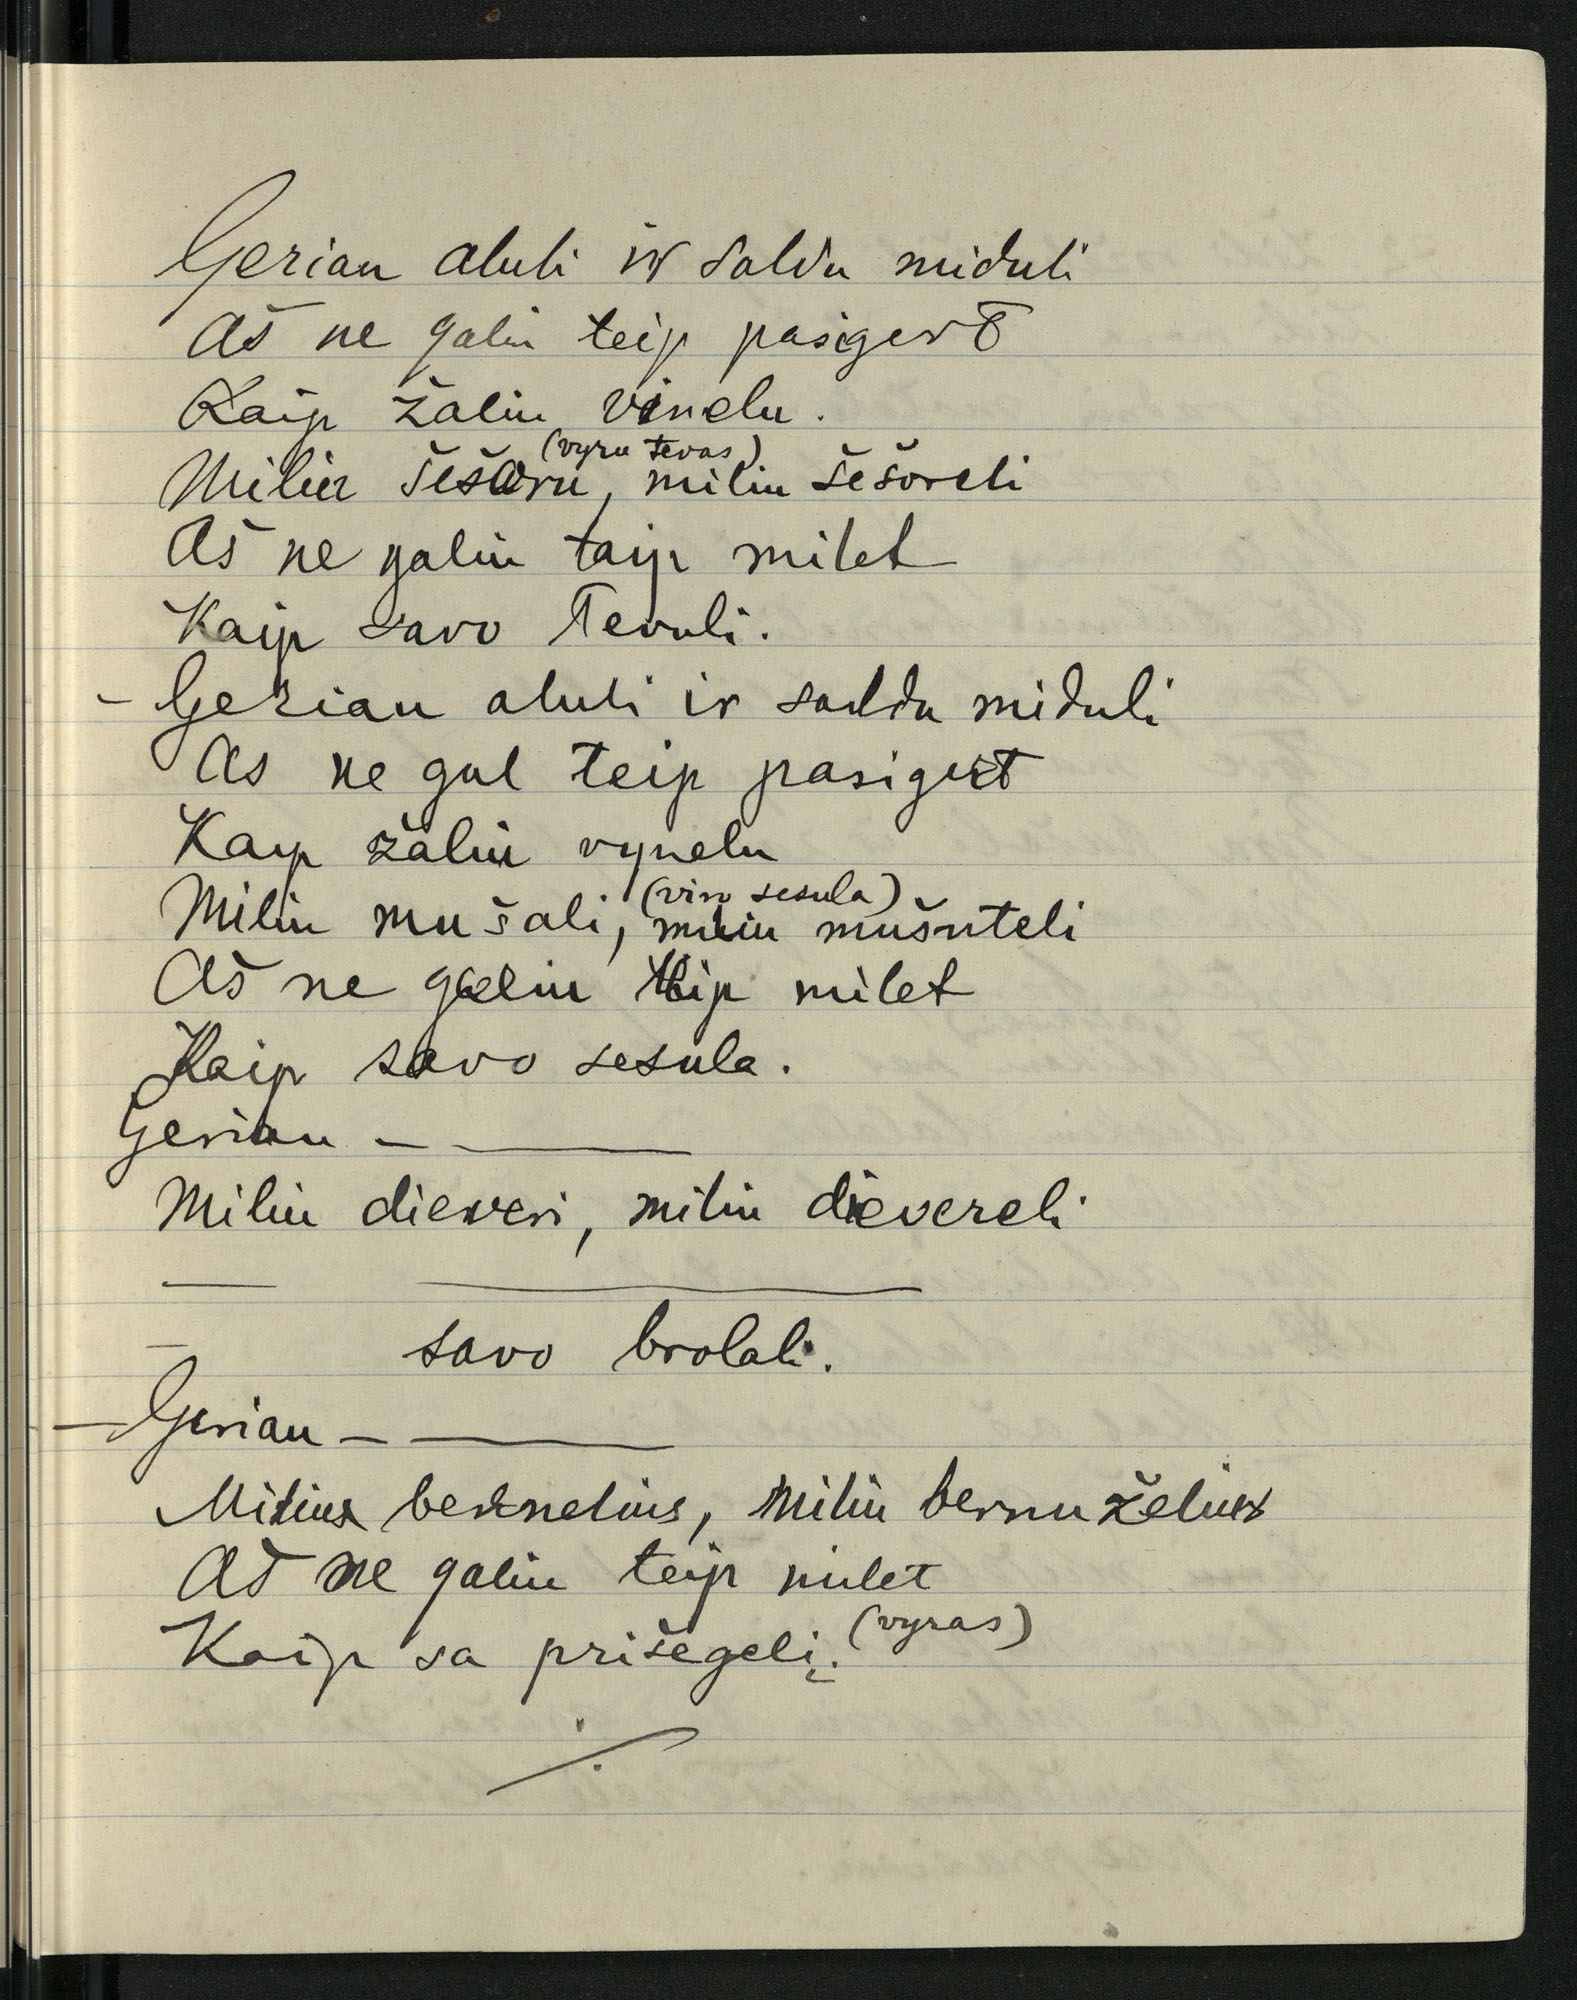 Gerian aluli ir saldu miduli
Aš ne galiu teip pasigert
Kaip žaliu vinelu.
(vyru tevas)
Miliu šešoru, miliu šešoreli
Aš ne galiu taip milet
Kaip savo Tevuli.
- Gerian aluli ir saldu miduli
As ne gal teip pasigert
Kaip žaliu vynelu
(viro sesula)
Miliu mušali, miliu mušuteli
Aš ne galiu teip milet
Kaip savo sesula.
Gerian - —
Miliu dieveri, miliu dievereli
— —
— savo brolali.
— Gerian - —
Milius bernelius, miliu bernuželius
Aš ne galiu teip milet
Kaip sa prišegeli. (vyras)